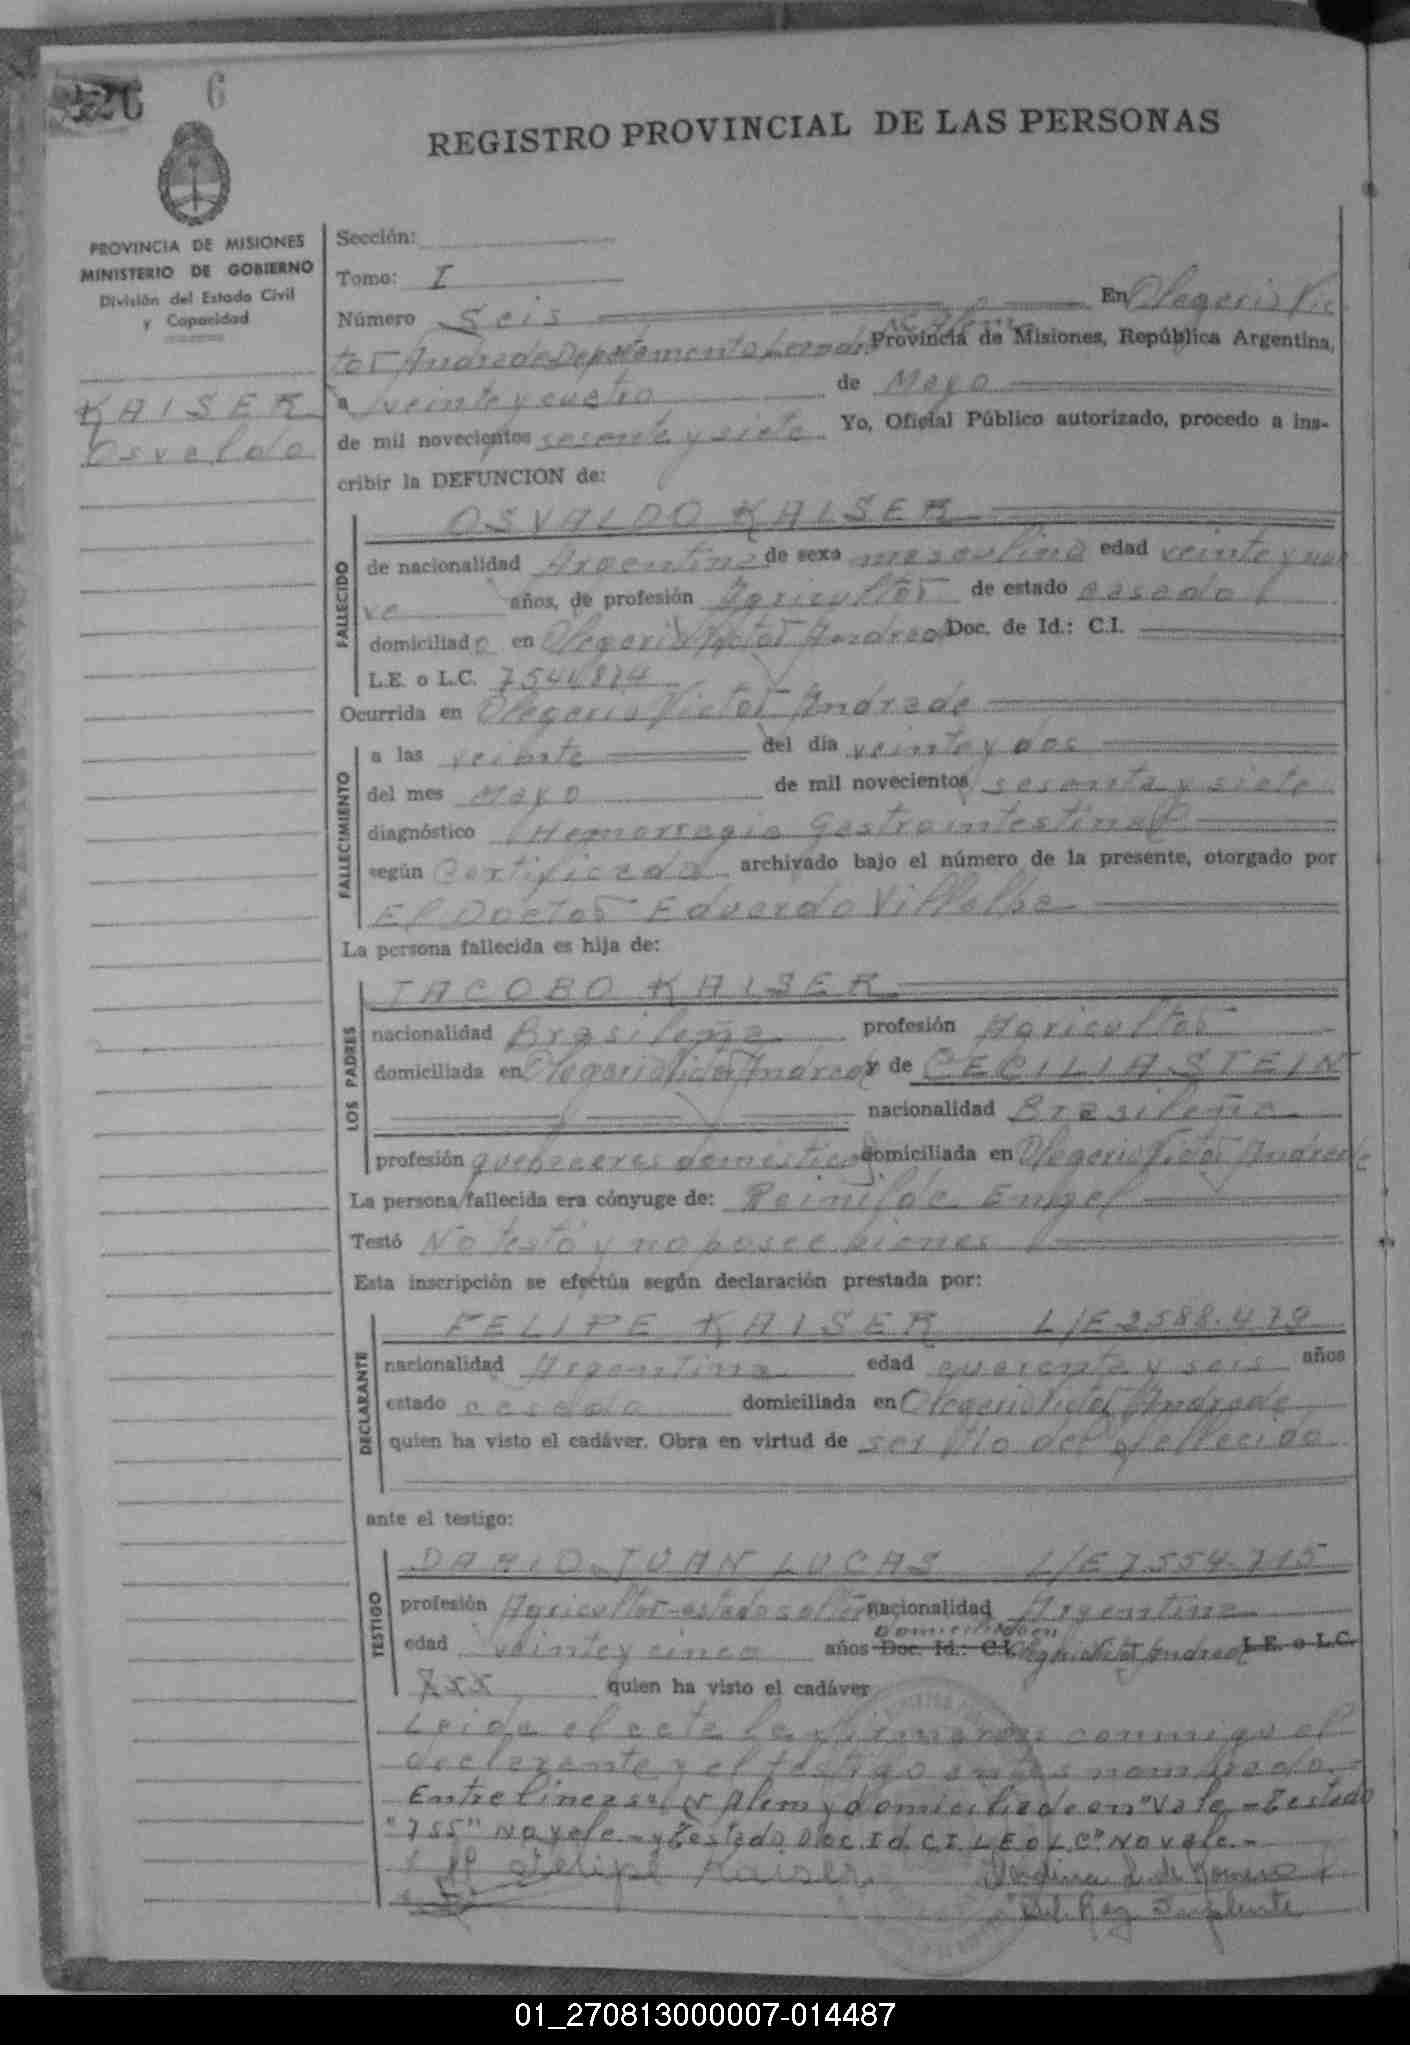 6
REGISTRO PROVINCIAL DE LAS PERSONAS
PROVINCIA DE MISIONES
MINISTERIO DE GOBIERNO
División del Estado Civil
y Capacidad
KAISER
Osvaldo
Sección:
Tomo: I
Número Seis En Olegario Víc
tor Andrade Departamento Leandro N. Alem Provincia de Misiones, República Argentina,
a veinte y cuatro de Mayo
de mil novecientos sesenta y siete Yo, Oficial Público autorizado, procedo a ins-
cribir la DEFUNCION de:
FALLECIDO
OSVALDO KAISER
de nacionalidad Argentina de sexo masculino edad veinte y nue
ve años, de profesión Agricultor de estado casado
domiciliado en Olegario Victor Andrade Doc. de Id.: C.I.
L.E. o L.C. 7541.874
Ocurrida en Olegario Victor Andrade
FALLECIMIENTO
a las veinte del día veinte y dos
del mes Mayo de mil novecientos sesenta y siete
diagnóstico Hemorragia Gastrointestinal
según Certificado archivado bajo el número de la presente, otorgado por
El Doctor Eduardo Villalba
La persona fallecida es hija de:
LOS PADRES
JACOBO KAISER
nacionalidad Brasileña profesión Agricultor
domiciliada en Olegario Victor Andrade y de CECILIA STEIN
nacionalidad Brasileña
profesión quehaceres domésticos domiciliada en Olegario Victor Andrade
La persona fallecida era cónyuge de: Reinilda Engel
Testó No testó y no posee bienes
Esta inscripción se efectúa según declaración prestada por:
DECLARANTE
FELIPE KAISER L/E 2588.479
nacionalidad Argentina edad cuarenta y seis años
estado casado domiciliada en Olegario Victor Andrade
quien ha visto el cadáver. Obra en virtud de ser tío del fallecido
ante el testigo:
TESTIGO
DARIO JUAN LUCAS L/E 7554.715
profesión Agricultor-estado soltero nacionalidad Argentina
domiciliado en
edad veinte y cinco años Doc. Id.: C.I. Olegario Victor Andrade L.E. o L.C.
quien ha visto el cadáver
Leida el acta la firmaron conmigo el
declarante y el testigo antes nombrado.-
Entre lineas: "N Alem y domiciliado en" Vale - Testado
"755" No vale - y Testado Doc. Id. C.I. L.E o L.C" No vale.-
Felipe Kaiser de Romero
Del. Reg. Suplente
01_270813000007-014487